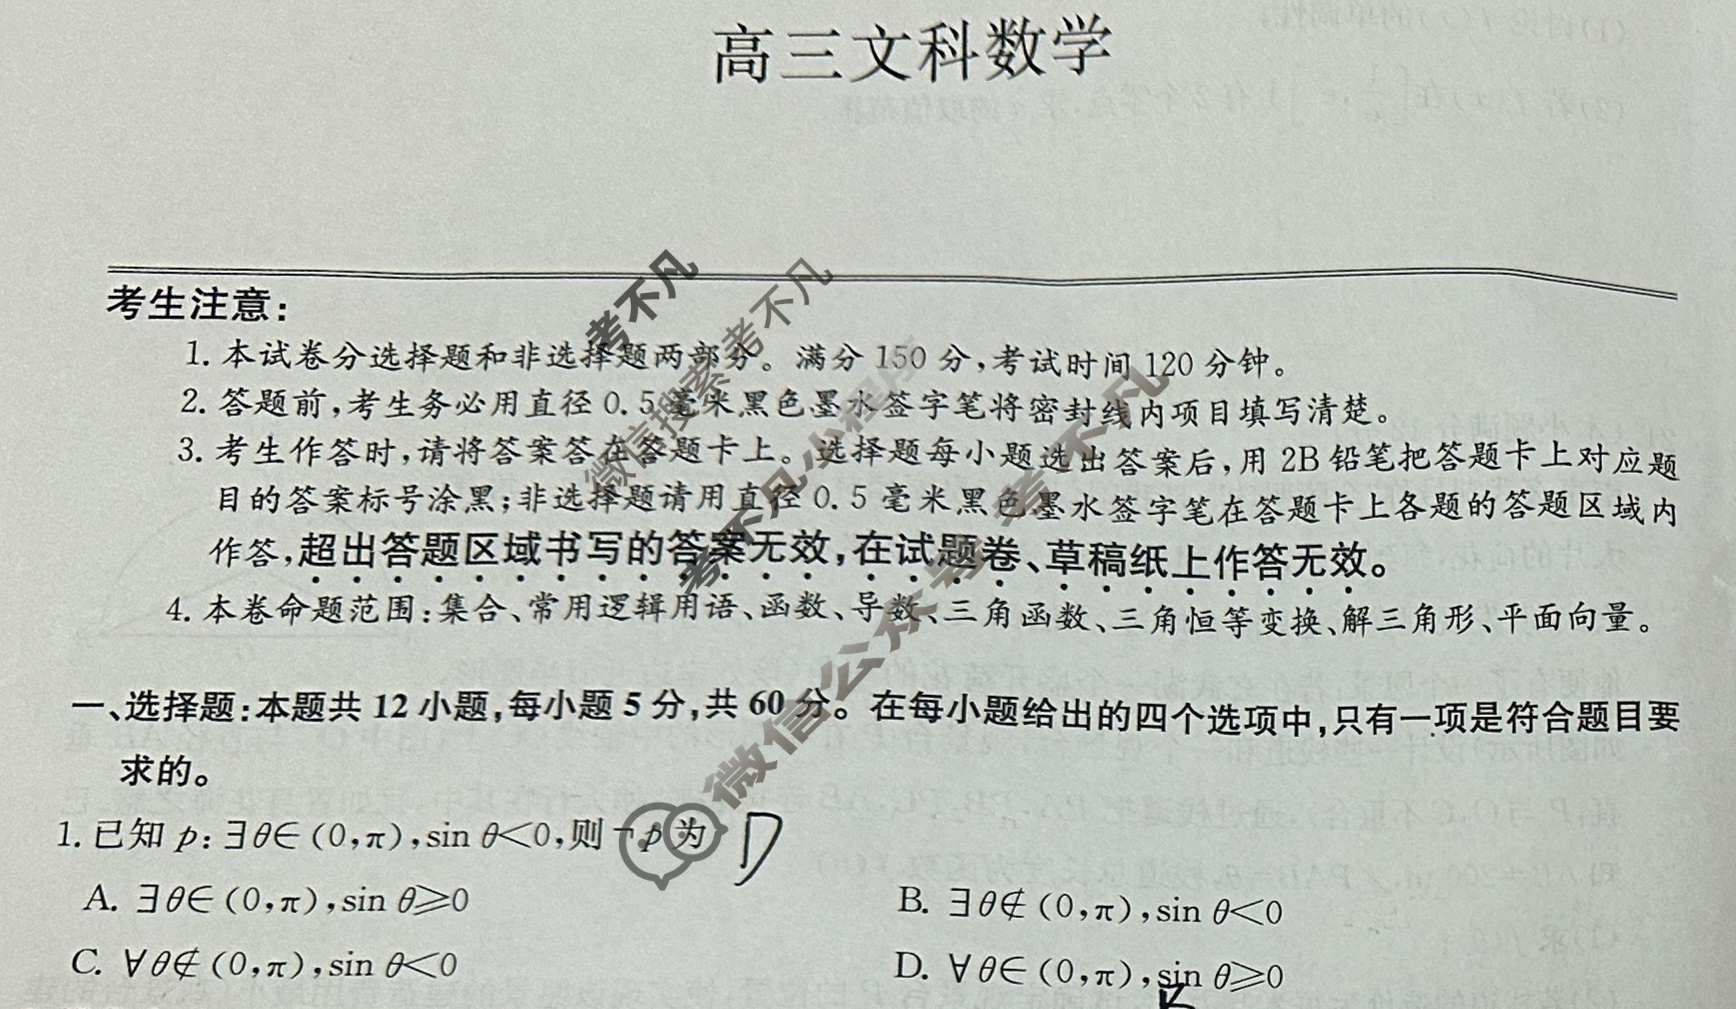 高三文科数学
考生注意:
1. 本试卷分选择题和非选择题两部分。满分 150 分,考试时间 120 分钟。
2. 答题前,考生务必用直径 0.5 毫米黑色墨水签字笔将密封线内项目填写清楚。
3. 考生作答时,请将答案答在答题卡上。选择题每小题选出答案后,用 2B 铅笔把答题卡上对应题
目的答案标号涂黑;非选择题请用直径 0.5 毫米黑色墨水签字笔在答题卡上各题的答题区域内
作答,超出答题区域书写的答案无效,在试题卷、草稿纸上作答无效。
4. 本卷命题范围:集合、常用逻辑用语、函数、导数、三角函数、三角恒等变换、解三角形、平面向量。
一、选择题:本题共 12 小题,每小题 5 分,共 60 分。在每小题给出的四个选项中,只有一项是符合题目要
求的。
1. 已知 p:∃θ∈(0,π),sin θ<0,则 ¬p 为 D
A. ∃θ∈(0,π),sin θ⩾0
B. ∃θ∉(0,π),sin θ<0
C. ∀θ∉(0,π),sin θ<0
D. ∀θ∈(0,π),sin θ⩾0
考不凡
微信搜索考不凡
考不凡小程序
微信公众号考不凡